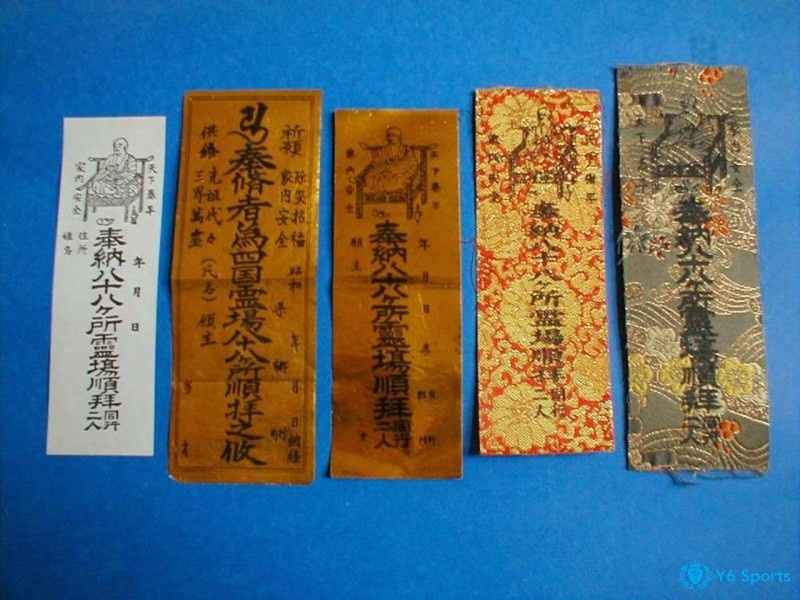 天下泰平
家内安全
年月日
奉納八十八ヶ所靈場順拜
同行二人
住所
姓名
祈願
除災招福
家内安全
昭和 年 月 日
奉脩者為四国霊場八十八所順拝之攸
供養
先祖代々
三界萬霊
(氏名)
願主
天下泰平
家内安全
年月日
奉納八十八ヶ所靈場順拜
同行二人
願主
家内安全
奉納八十八ヶ所靈場順拜
同行二人
奉納八十八ヶ所靈場順拜
Y6 Sports